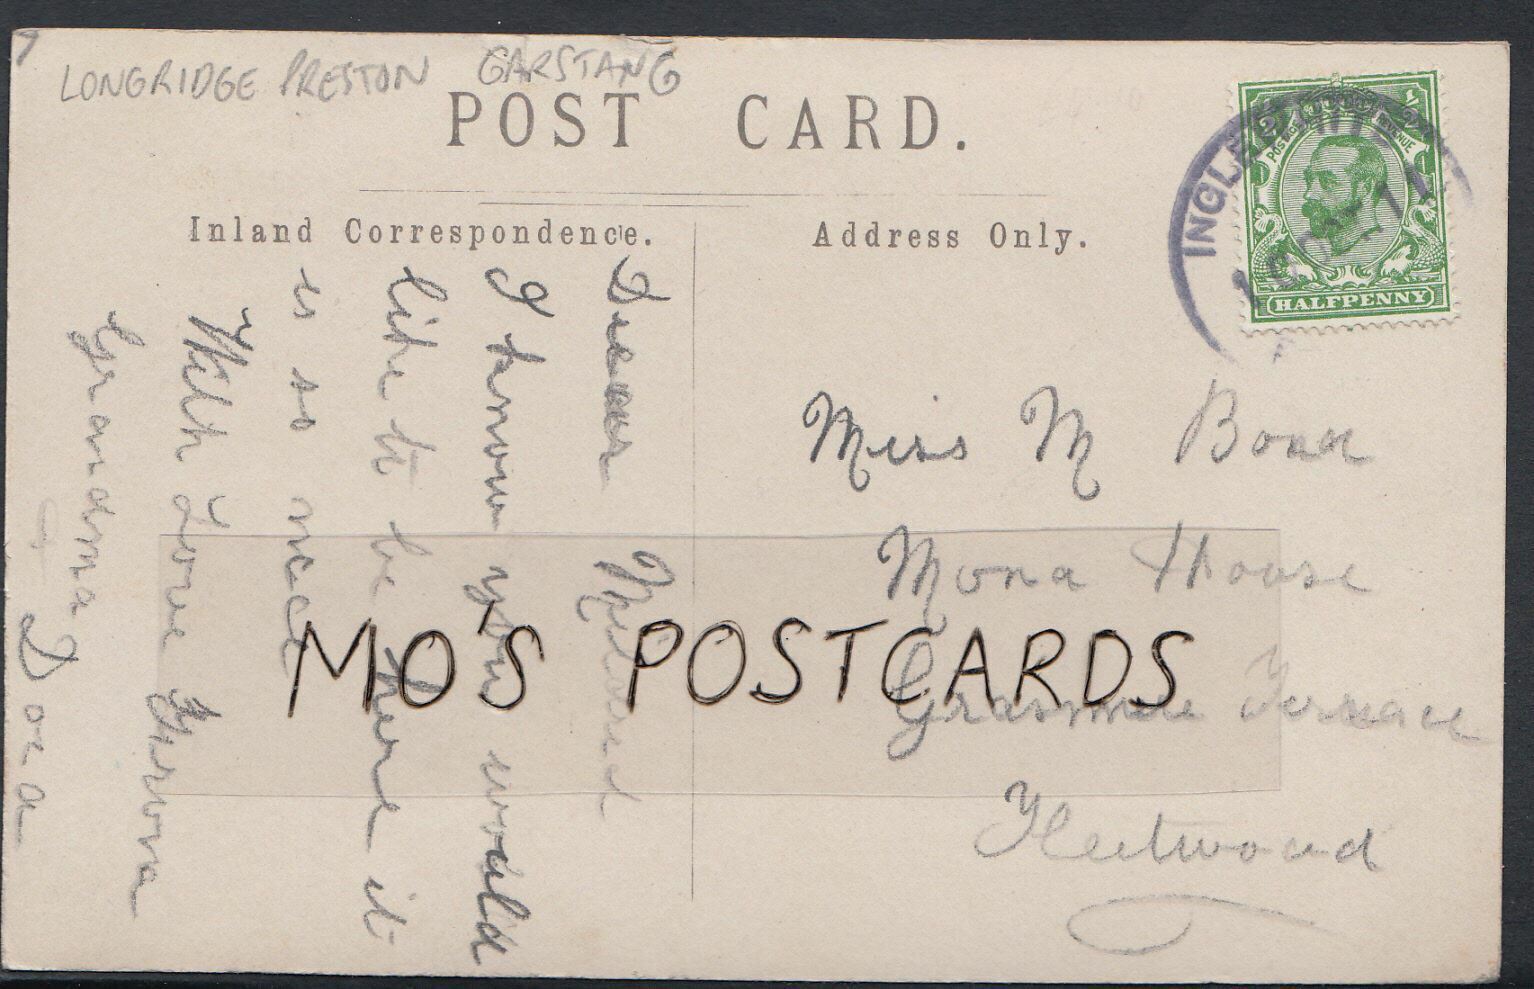 LONGRIDGE PRESTON GARSTANG
POST CARD.
Inland Correspondence.
Address Only.
POSTAGE REVENUE
HALFPENNY
INGLEWHITE
11
Dear
I know you would
like to be here it
is so nice
With Love from
Grandma
Dora
Miss M
Mona House
Grasmere Terrace
Fleetwood
MO'S POSTCARDS